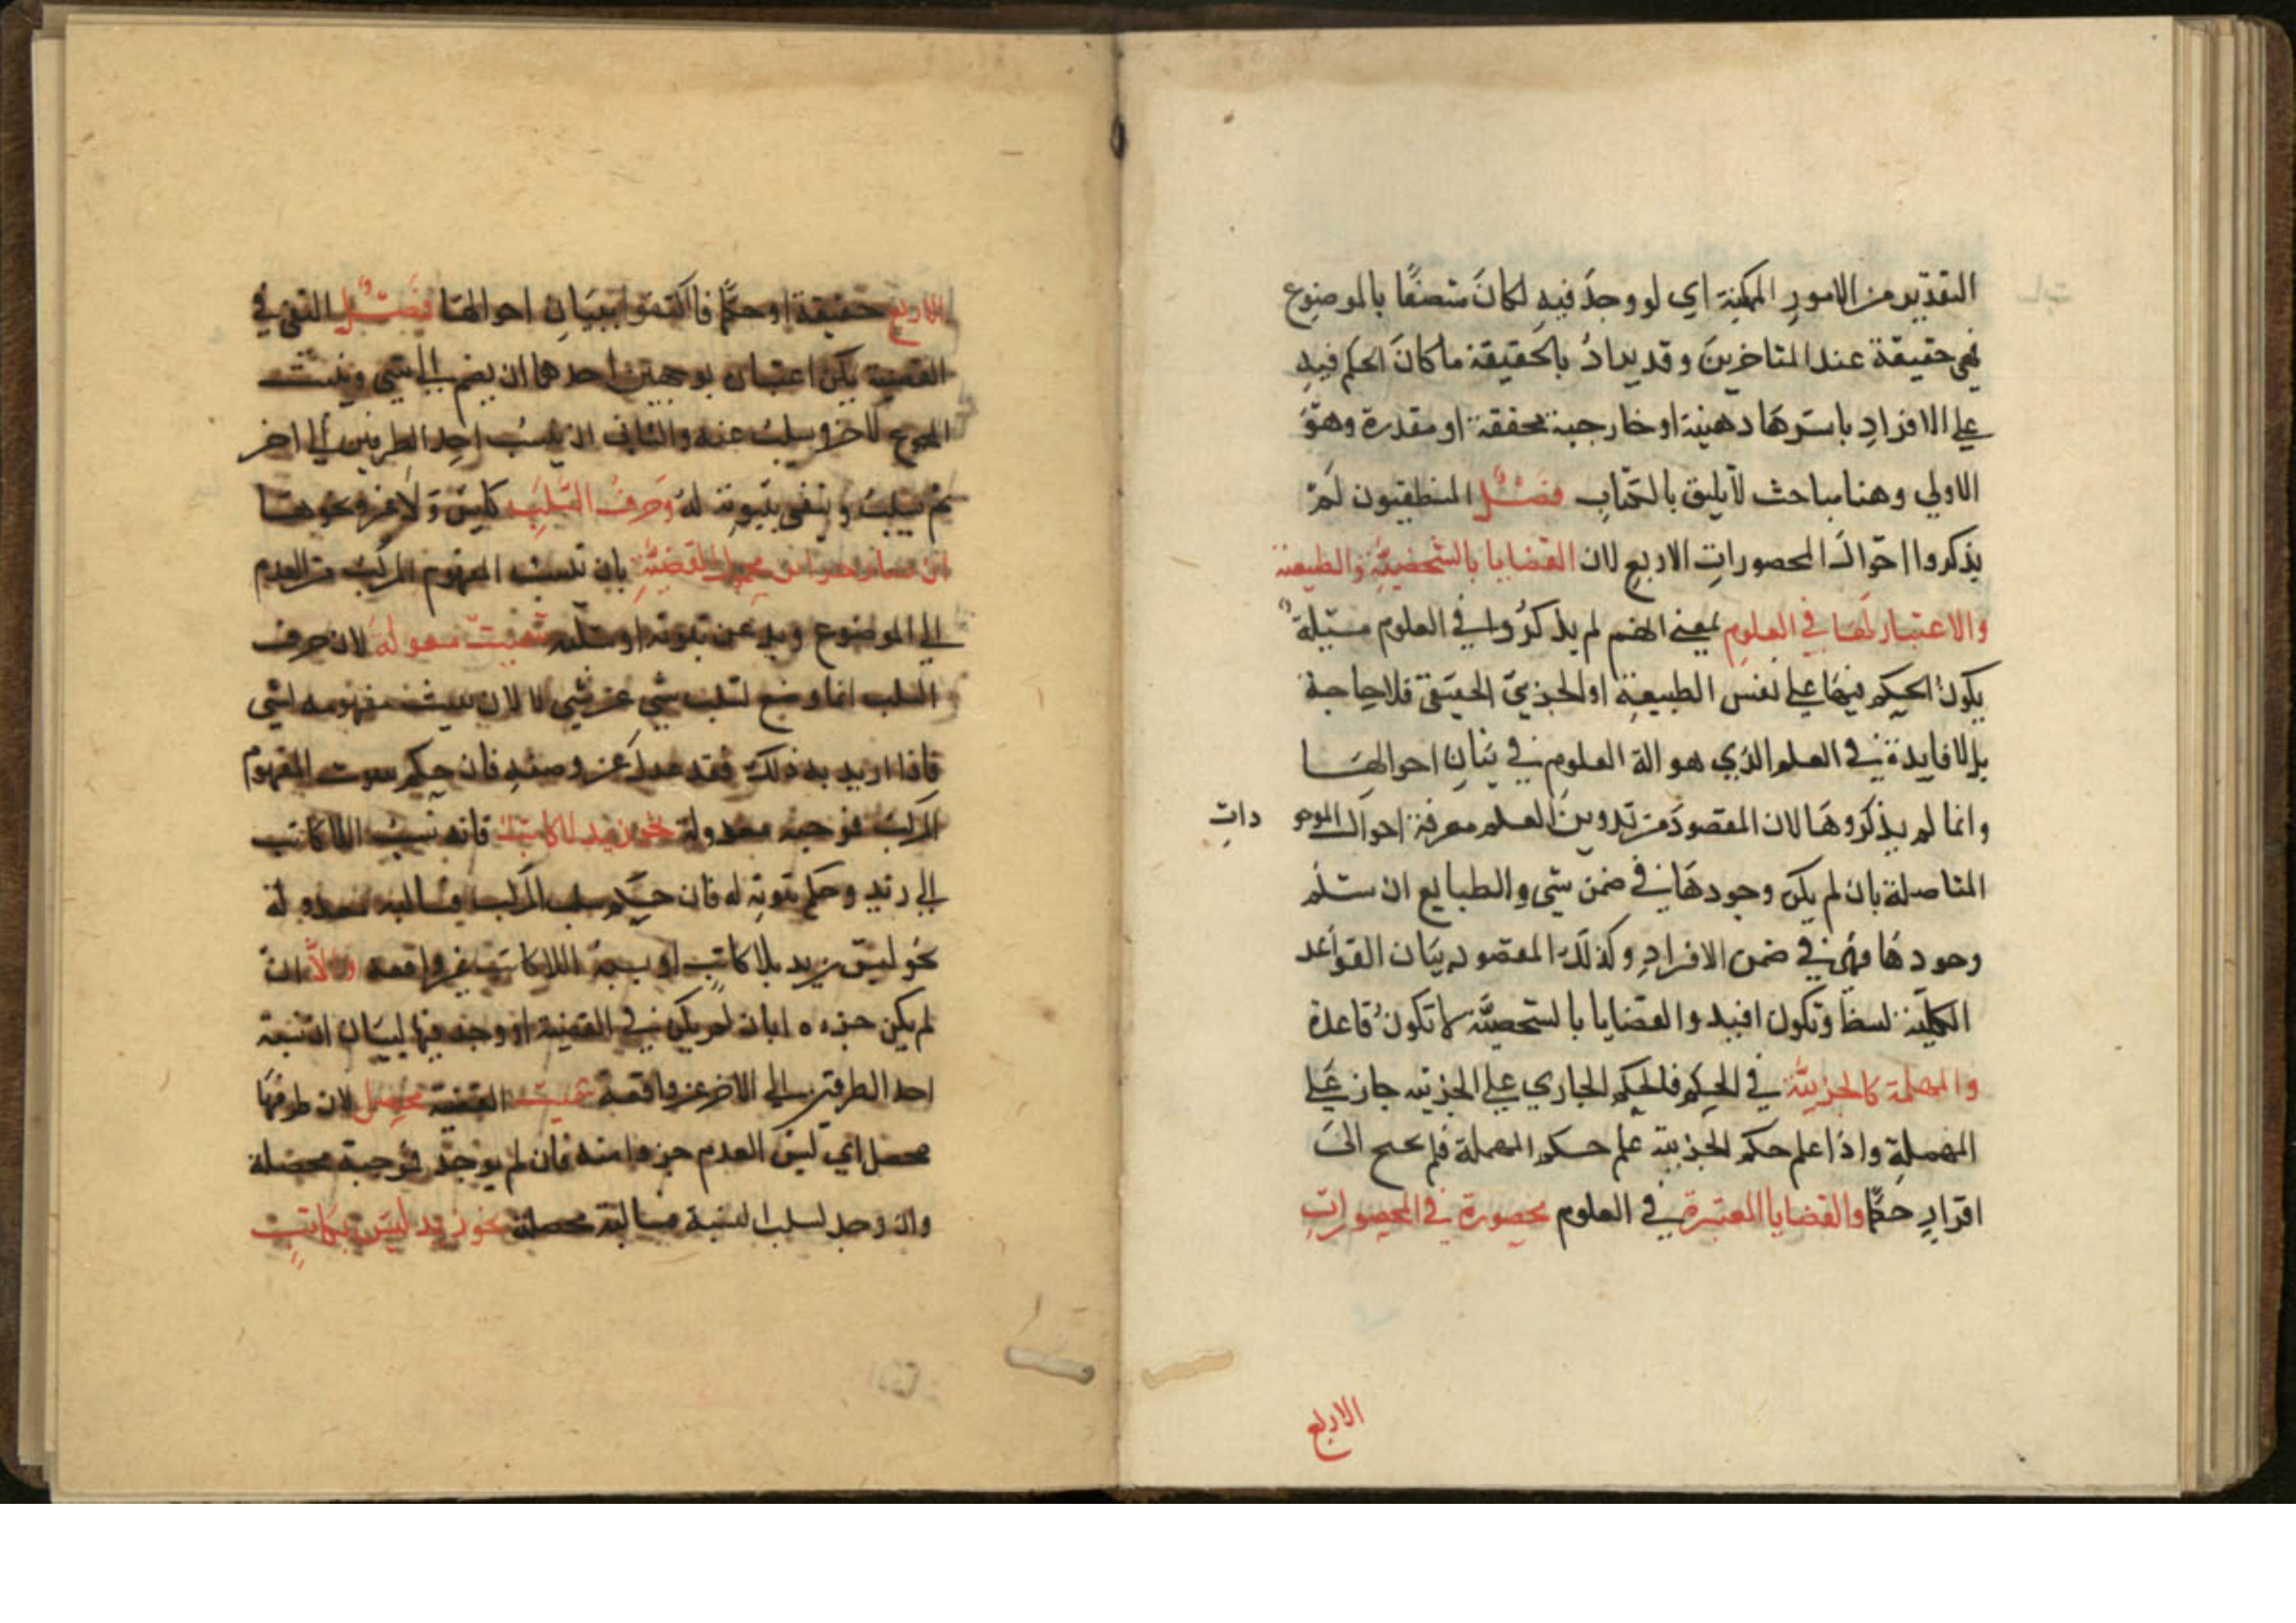 التقدير من الامور الممكنة اي لو وجد فيه لكان متصفا بالموضوع
فهي حقيقة عند المتاخرين وقد يراد بالحقيقة ما كان الحكم فيه
على الافراد باسرها ذهنية او خارجية محققة او مقدرة وهو
الاولي وهنا مباحث لا يليق بالكتاب فصل المنطقيون لم
يذكروا احوال المحصورات الاربع لان القضايا بالشخصية والطبيعة
والاعتبار لهما في العلوم بمعنى انهم لم يذكروا في العلوم مسئلة
يكون الحكم فيها على نفس الطبيعة او الجزئي الحقيقي فلا حاجة
بل لا فايدة في العلم الذي هو الة العلوم في بيان احوالها
وانما لم يذكروها لان المقصود من تدوين العلم معرفة احوال الموجو دات
المتاصلة بان لم يكن وجودها في ضمن شي والطبايع ان سلم
وجودها فهي في ضمن الافراد وكذلك المقصود بيان القواعد
الكلية وتكون افيد والقضايا بالشخصية لا تكون قاعدة
والمهملة كالجزيية في الحكم فالحكم الجاري على الجزئية جاز على
المهملة واذا علم حكم الجزيية علم حكم المهملة فلم يحتج الى
افراد حكما والقضايا المعتبرة في العلوم محصورة في المحصورات
الاربع
الاربع حقيقة او حكما فاكتفوا ببيان احوالها فصل النفي في
القضية يكن اعتبار بوجهين احدهما ان يضم الى الشي وينسب
المجموع لاخر ويسلب عنه والثاني ان ينسب احد الطرفين الى اخر
ثم يسلب وينفى ثبوته له وحرف السلب كليس ولا غير ونحوها
ان صار جزا من محمول القضية بان ينسب المفهوم المركب من العدم
الى الموضوع ثبوته او سلبه سميت معدولة لان حرف
السلب انما وضع لسلب شي عن شي لا لان يثبت مفهومه لشي
فاذا اريد به ذلك فقد عدل عن وضعه فان حكم بثبوت المفهوم
المركب فموجبه معدولة نحو زيد لا كاتب فانه نسب اللا كاتب
الى زيد وحكم بثبوته له فان حكم بسلب المركب فسالبه معدولة
نحو ليس زيد بلا كاتب اللا كاتب غير واقعة والا ان
لم يكن جزءه ابان لم يكن في القضية او وجد فيها لبيان ان نسبة
احد الطرفين الى الاخر غير واقعة سميت القضية محصل لان طرفها
محصل اي ليس العدم جزءا منه فان لم يوجد فموجبة محصلة
وان وجد لسلب النسبة فسالبة محصلة نحو زيد ليس بكاتب